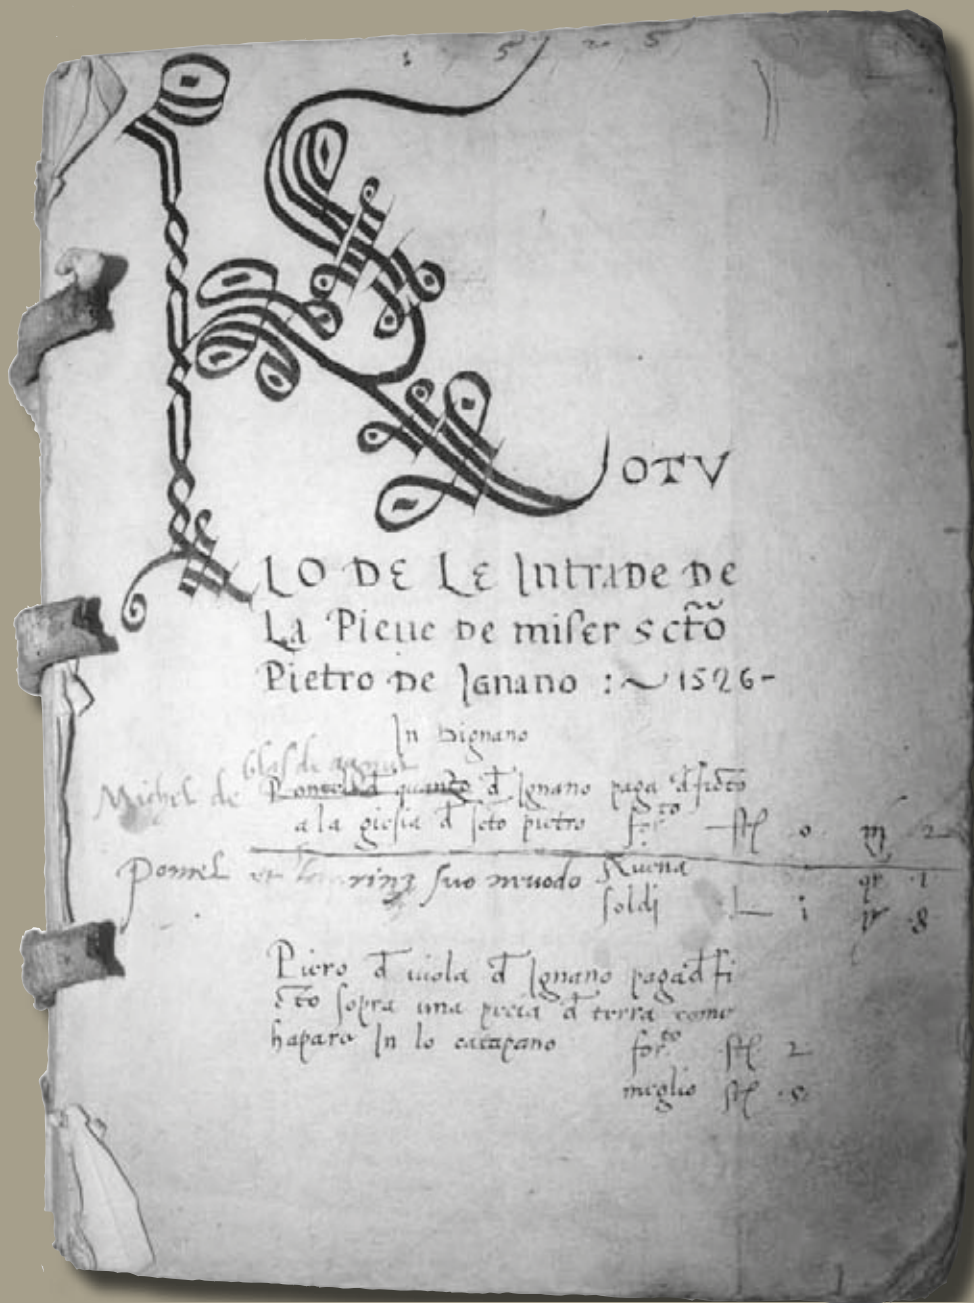 1 5 2 5
ROTV
LO DE LE Intrade DE
La Pieue de miser scto
Pietro de Ignano : ~ 1526 -
In Vignano
blas de
Michel de đ Ignano paga đ ficto
a la giesia đ scto pietro for.to st o m 2
Ponel et suo neuodo Auena qr 1
soldi L i pr 8
Piero đ uiola đ Ignano paga đ fi
cto sopra una pecia đ terra come
hapare In lo catapano for.to st 2
meglio st 8